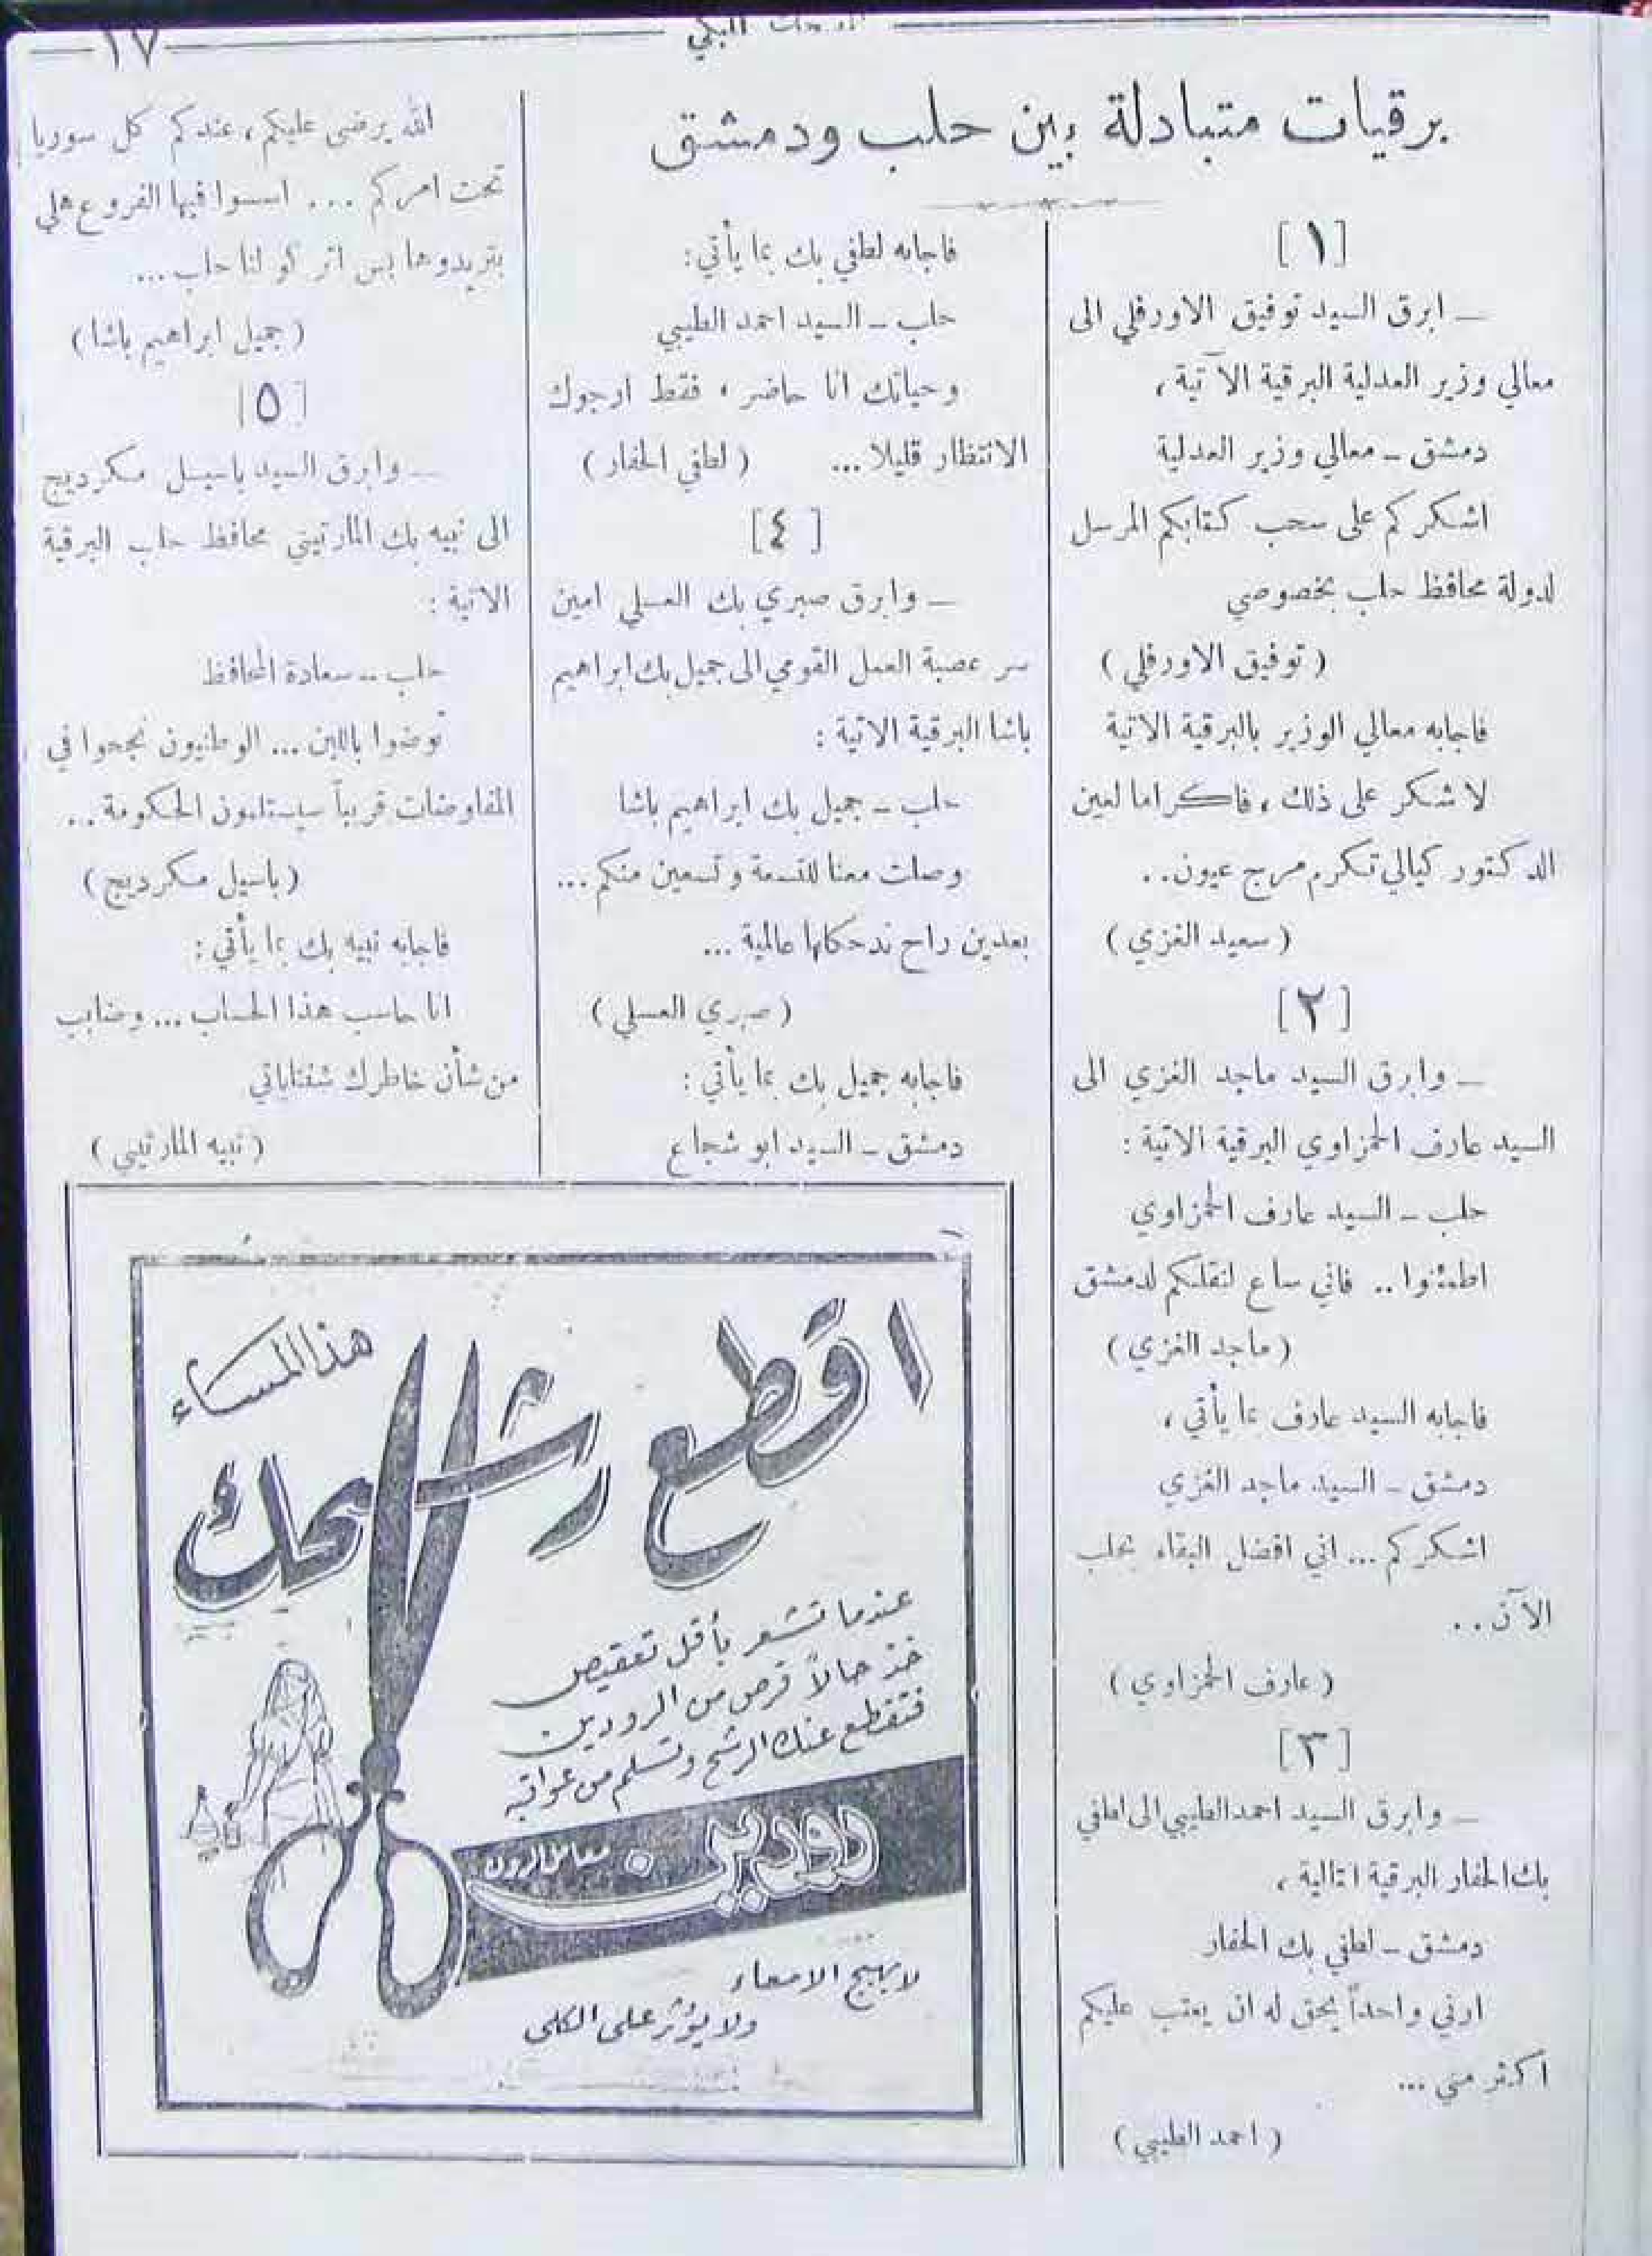 ١٧
برقيات متبادلة بين حلب ودمشق
[١]
ــ ابرق السيد توفيق الاورفلي الى
معالي وزير العدلية البرقية الآتية،
دمشق ــ معالي وزير العدلية
اشكركم على سحب كتابكم المرسل
لدولة محافظ حلب بخصوصي
( توفيق الاورفلي )
فاجابه معالي الوزير بالبرقية الاتية
لا شكر على ذلك، فاكراما لعين
الدكتور كيالي تكرم مرج عيون..
( سعيد الغزي )
[٢]
ــ وابرق السيد ماجد الغزي الى
السيد عارف الحمزاوي البرقية الاتية :
حلب ــ السيد عارف الحمزاوي
اطمئنوا .. فاني ساع لنقلكم لدمشق
( ماجد الغزي )
فاجابه السيد عارف بما يأتي،
دمشق ــ السيد ماجد الغزي
اشكركم ... اني افضل البقاء بحلب
الآن ..
( عارف الحمزاوي )
[٣]
ــ وابرق السيد احمد الطيبي الى لطفي
بك الحفار البرقية التالية،
دمشق ــ لطفي بك الحفار
ارني واحداً يحق له ان يعتب عليكم
اكثر مني ...
( احمد الطيبي )
فاجابه لطفي بك بما يأتي :
حلب ــ السيد احمد الطيبي
وحياتك انا حاضر، فقط ارجوك
الانتظار قليلا ... ( لطفي الحفار )
[٤]
ــ وابرق صبري بك العسلي امين
سر عصبة العمل القومي الى جميل بك ابراهيم
باشا البرقية الاتية :
حلب ــ جميل بك ابراهيم باشا
وصلت معنا للتسعة وتسعين منكم ...
بعدين راح ندحكلها عالمية ...
( صبري العسلي )
فاجابه جميل بك بما يأتي :
دمشق ــ السيد ابو شجاع
الله يرضى عليكم، عندكم كل سوريا
تحت امركم ... اسسوا فيها الفروع هلي
بتريدوها بس اتركو لنا حلب ...
( جميل ابراهيم باشا )
[٥]
ــ وابرق السيد باسيل مكرديج
الى نبيه بك المارتيني محافظ حلب البرقية
الاتية :
حلب ــ سعادة المحافظ
توضوا باللبن ... الوطنيون نجحوا في
المفاوضات قريباً سيستلمون الحكومة ..
( باسيل مكرديج )
فاجابه نبيه بك بما يأتي :
انا حاسب هذا الحساب ... وضابب
من شأن خاطرك شفتاياتي
( نبيه المارتيني )
اقطع
رشحك
هذا المساء
عندما تشعر بأقل تعقيص
خذ حالاً قرص من الرودين
فتقطع عنك الرشح وتسلم من عواقبه
رودين
معامل الرون
لا يهيج الامعاء
ولا يؤثر على الكلى